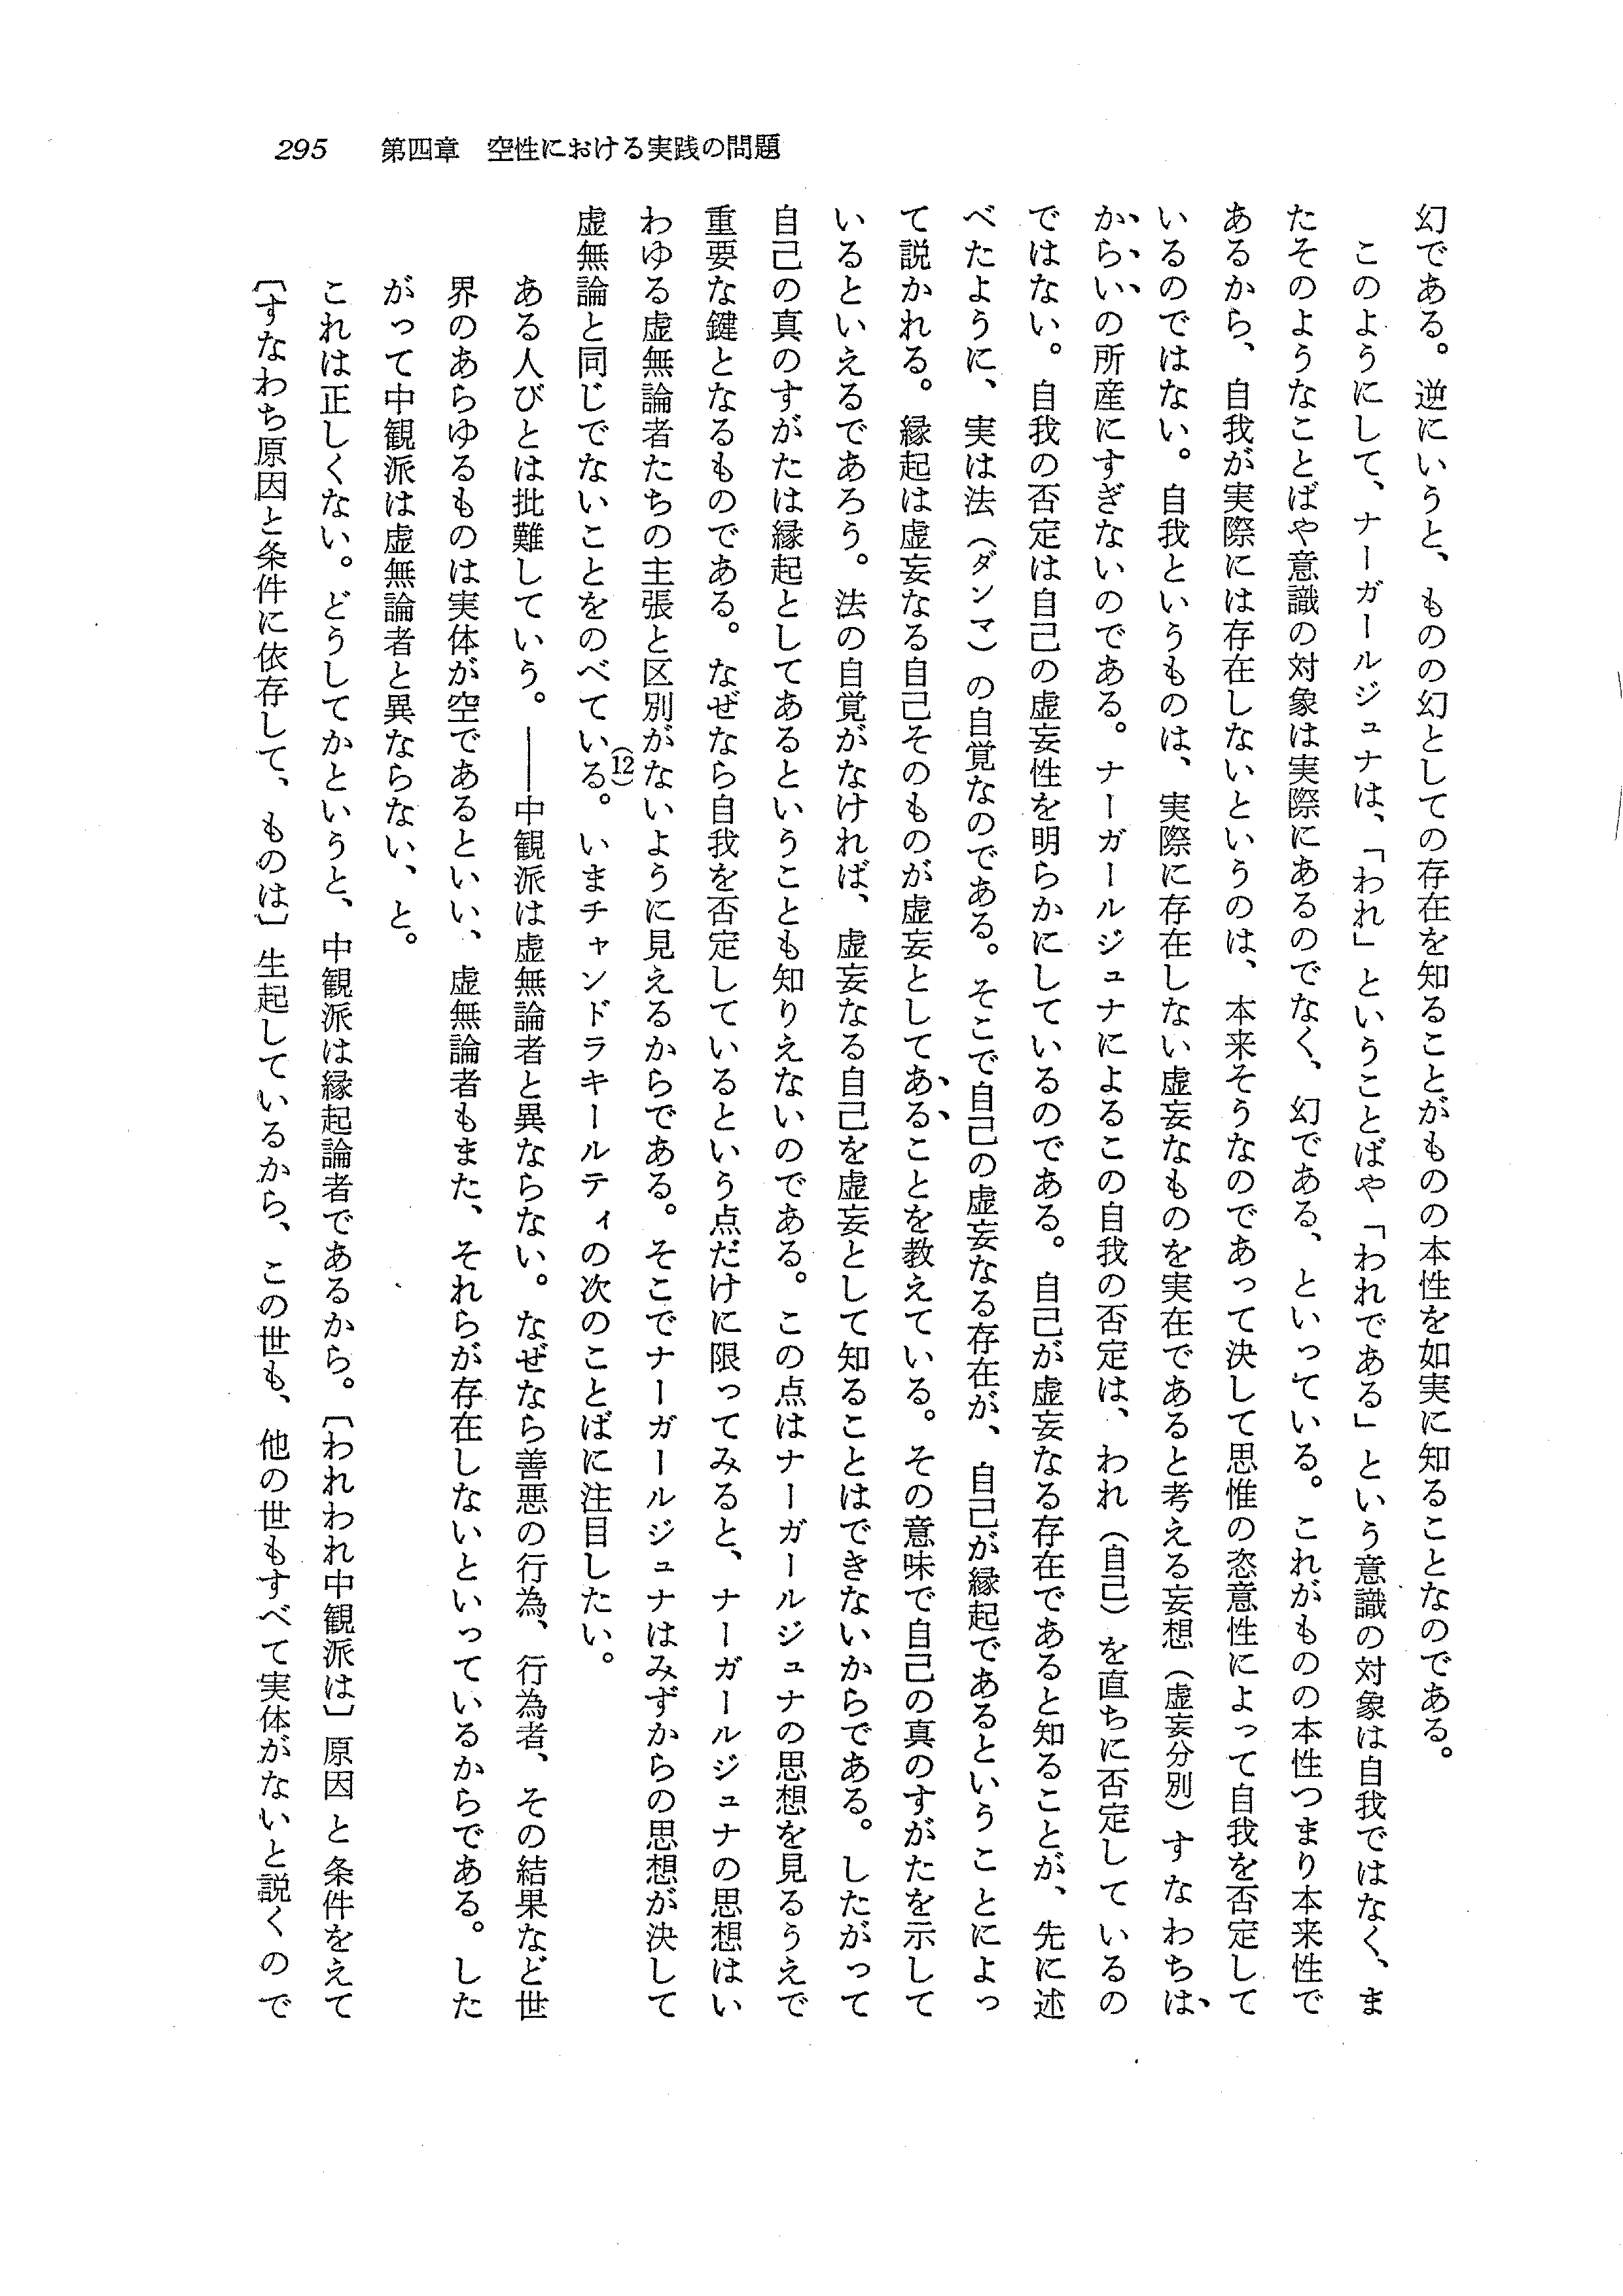 295　第四章　空性における実践の問題
幻である。逆にいうと、ものの幻としての存在を知ることがものの本性を如実に知ることなのである。
　このようにして、ナーガールジュナは、「われ」ということばや「われである」という意識の対象は自我ではなく、ま
たそのようなことばや意識の対象は実際にあるのでなく、幻である、といっている。これがものの本性つまり本来性で
あるから、自我が実際には存在しないというのは、本来そうなのであって決して思惟の恣意性によって自我を否定して
いるのではない。自我というものは、実際に存在しない虚妄なものを実在であると考える妄想（虚妄分別）すなわちは
からいの所産にすぎないのである。ナーガールジュナによるこの自我の否定は、われ（自己）を直ちに否定しているの
ではない。自我の否定は自己の虚妄性を明らかにしているのである。自己が虚妄なる存在であると知ることが、先に述
べたように、実は法（ダンマ）の自覚なのである。そこで自己の虚妄なる存在が、自己が縁起であるということによっ
て説かれる。縁起は虚妄なる自己そのものが虚妄としてあることを教えている。その意味で自己の真のすがたを示して
いるといえるであろう。法の自覚がなければ、虚妄なる自己を虚妄として知ることはできないからである。したがって
自己の真のすがたは縁起としてあるということも知りえないのである。この点はナーガールジュナの思想を見るうえで
重要な鍵となるものである。なぜなら自我を否定しているという点だけに限ってみると、ナーガールジュナの思想はい
わゆる虚無論者たちの主張と区別がないように見えるからである。そこでナーガールジュナはみずからの思想が決して
虚無論と同じでないことをのべている(12)。いまチャンドラキールティの次のことばに注目したい。
　ある人びとは批難していう。――中観派は虚無論者と異ならない。なぜなら善悪の行為、行為者、その結果など世
　界のあらゆるものは実体が空であるといい、虚無論者もまた、それらが存在しないといっているからである。した
　がって中観派は虚無論者と異ならない、と。
　これは正しくない。どうしてかというと、中観派は縁起論者であるから。〔われわれ中観派は〕原因と条件をえて
　〔すなわち原因と条件に依存して、ものは〕生起しているから、この世も、他の世もすべて実体がないと説くので